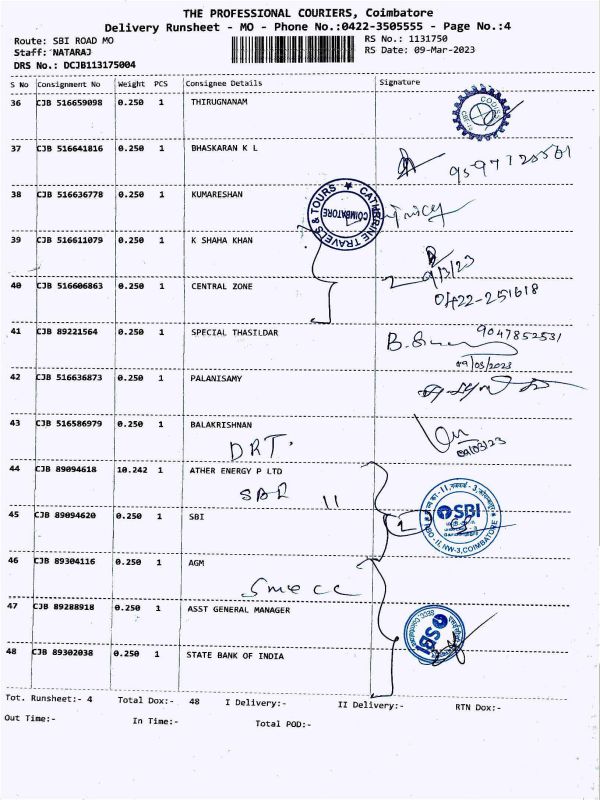 THE PROFESSIONAL COURIERS, Coimbatore
Delivery Runsheet - MO - Phone No.:0422-3505555 - Page No.:4
Route: SBI ROAD MO
RS No.: 1131750
Staff: NATARAJ
RS Date: 09-Mar-2023
DRS No.: DCJB113175004
S No Consignment No Weight PCS Consignee Details Signature
36 CJB 516659098 0.250 1 THIRUGNANAM
37 CJB 516641816 0.250 1 BHASKARAN K L
38 CJB 516636778 0.250 1 KUMARESHAN
CATHERINE TRAVELS & TOURS ★
COIMBATORE
39 CJB 516611079 0.250 1 K SHAHA KHAN
9/3/23
40 CJB 516606863 0.250 1 CENTRAL ZONE
2
0422-251618
41 CJB 89221564 0.250 1 SPECIAL THASILDAR
9047852531
09/03/2023
42 CJB 516636873 0.250 1 PALANISAMY
43 CJB 516586979 0.250 1 BALAKRISHNAN
09/03/23
DRT.
44 CJB 89094618 10.242 1 ATHER ENERGY P LTD
SBI
45 CJB 89094620 0.250 1 SBI
2
46 CJB 89304116 0.250 1 AGM
Smecc
47 CJB 89288918 0.250 1 ASST GENERAL MANAGER
SBI
48 CJB 89302038 0.250 1 STATE BANK OF INDIA
Tot. Runsheet:- 4 Total Dox:- 48 I Delivery:- II Delivery:- RTN Dox:-
Out Time:- In Time:- Total POD:-